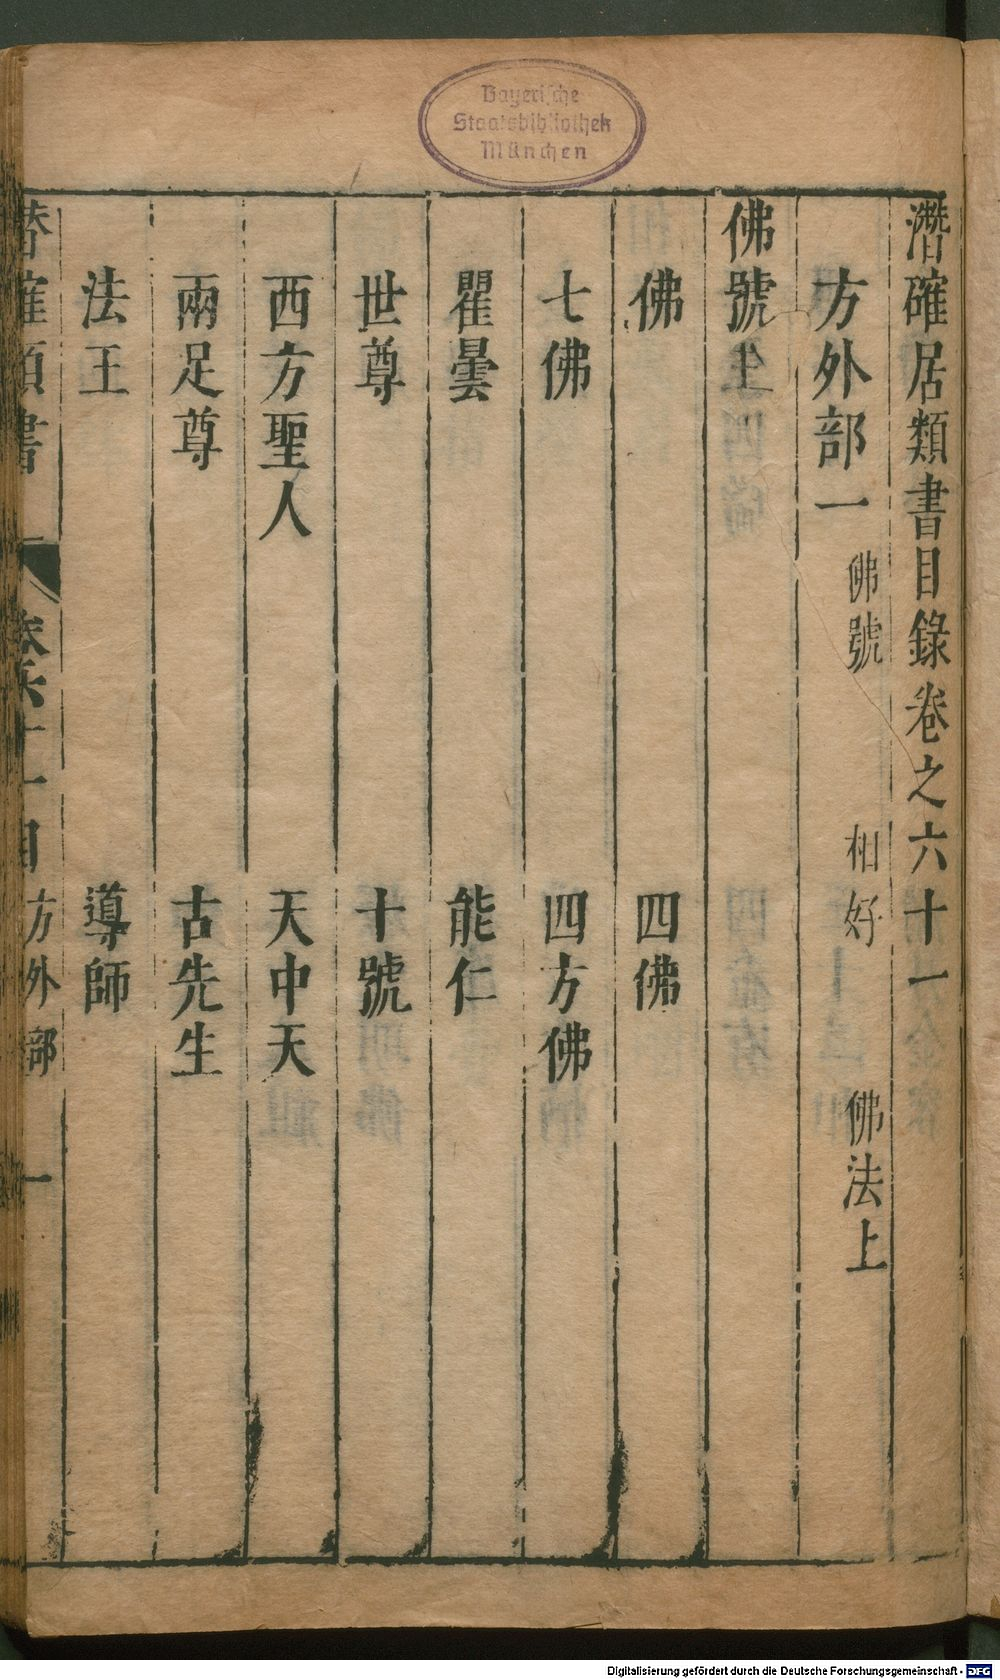 Bayerische
Staatsbibliothek
München
潛確居類書目錄卷之六十一
方外部一 佛號 相好 佛法上
佛號
佛 四佛
七佛 四方佛
瞿曇 能仁
世尊 十號
西方聖人 天中天
兩足尊 古先生
法王 導師
潛確類書 卷六十一目 方外部 一
Digitalisierung gefördert durch die Deutsche Forschungsgemeinschaft - DFG